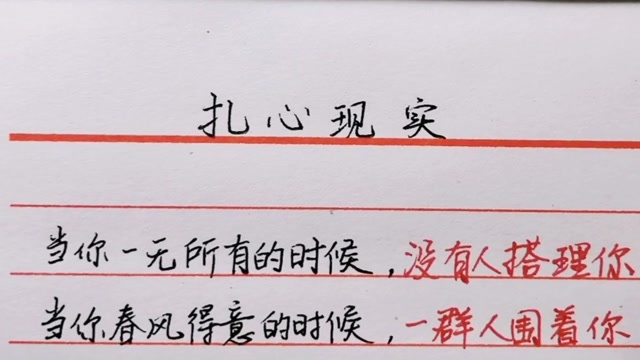 扎心现实
当你一无所有的时候,没有人搭理你
当你春风得意的时候,一群人围着你